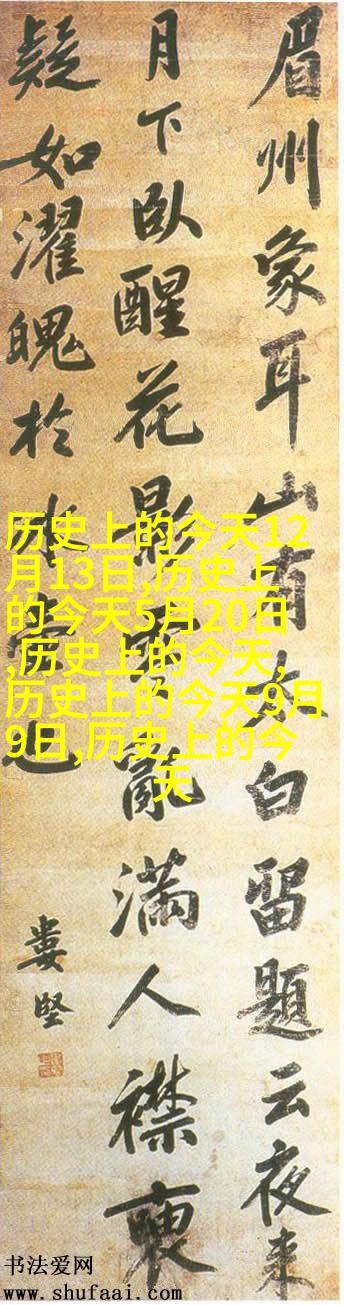 眉州象耳山有太白留題云夜来
月下臥醒花影零亂滿人襟
疑如濯魄於冰壺也
婁堅
历史上的今天12
月13日,历史上
的今天5月20日
,历史上的今天,
历史上的今天9月
9日,历史上的今
天
书法爱网
www.shufaai.com